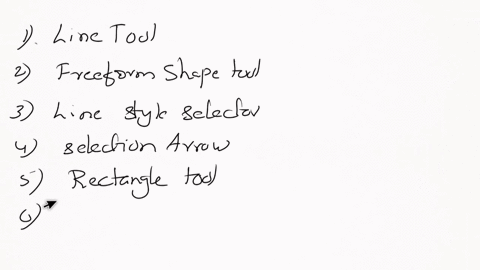 1). Line Tool
2) Freeform Shape tool
3) Line style selector
4) selection Arrow
5) Rectangle tool
6)